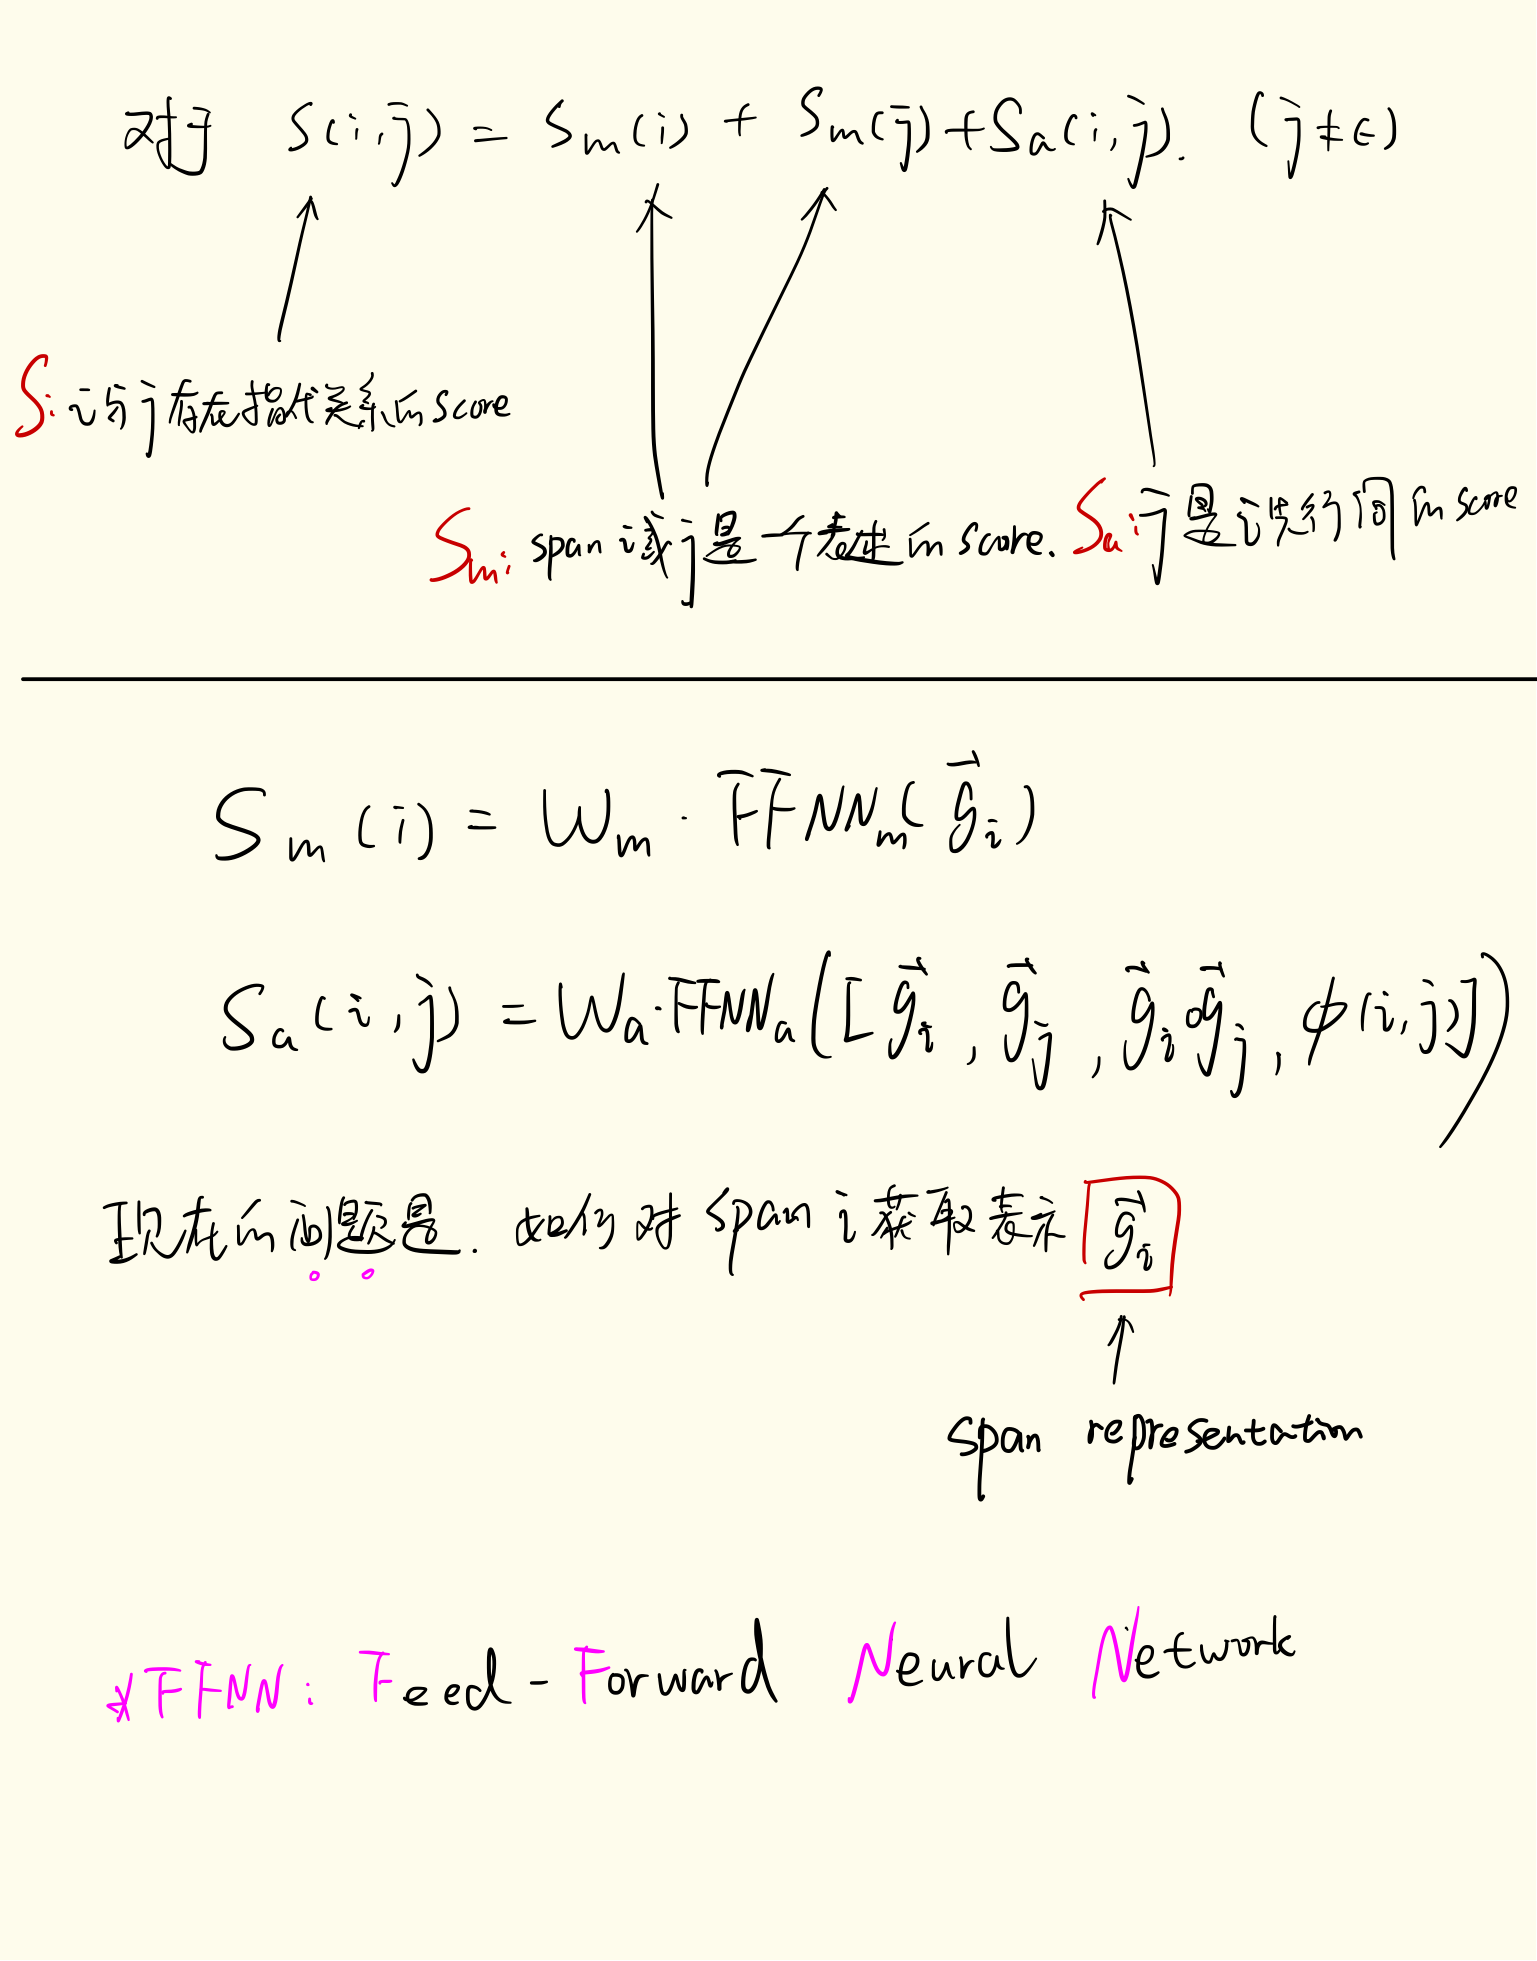 对于 S(i,j) = Sm(i) + Sm(j) + Sa(i,j). (j≠ϵ)
S: i与j存在指代关系的score
Sm: span i或j是一个表述的score.
Sa: j是i先行词的score
Sm(i) = Wm · FFNNm(g⃗i)
Sa(i,j) = Wa·FFNNa([g⃗i, g⃗j, g⃗i∘g⃗j, ϕ(i,j)])
现在的问题是. 如何对 span i 获取表示 g⃗i
span representation
*FFNN: Feed-Forward Neural Network